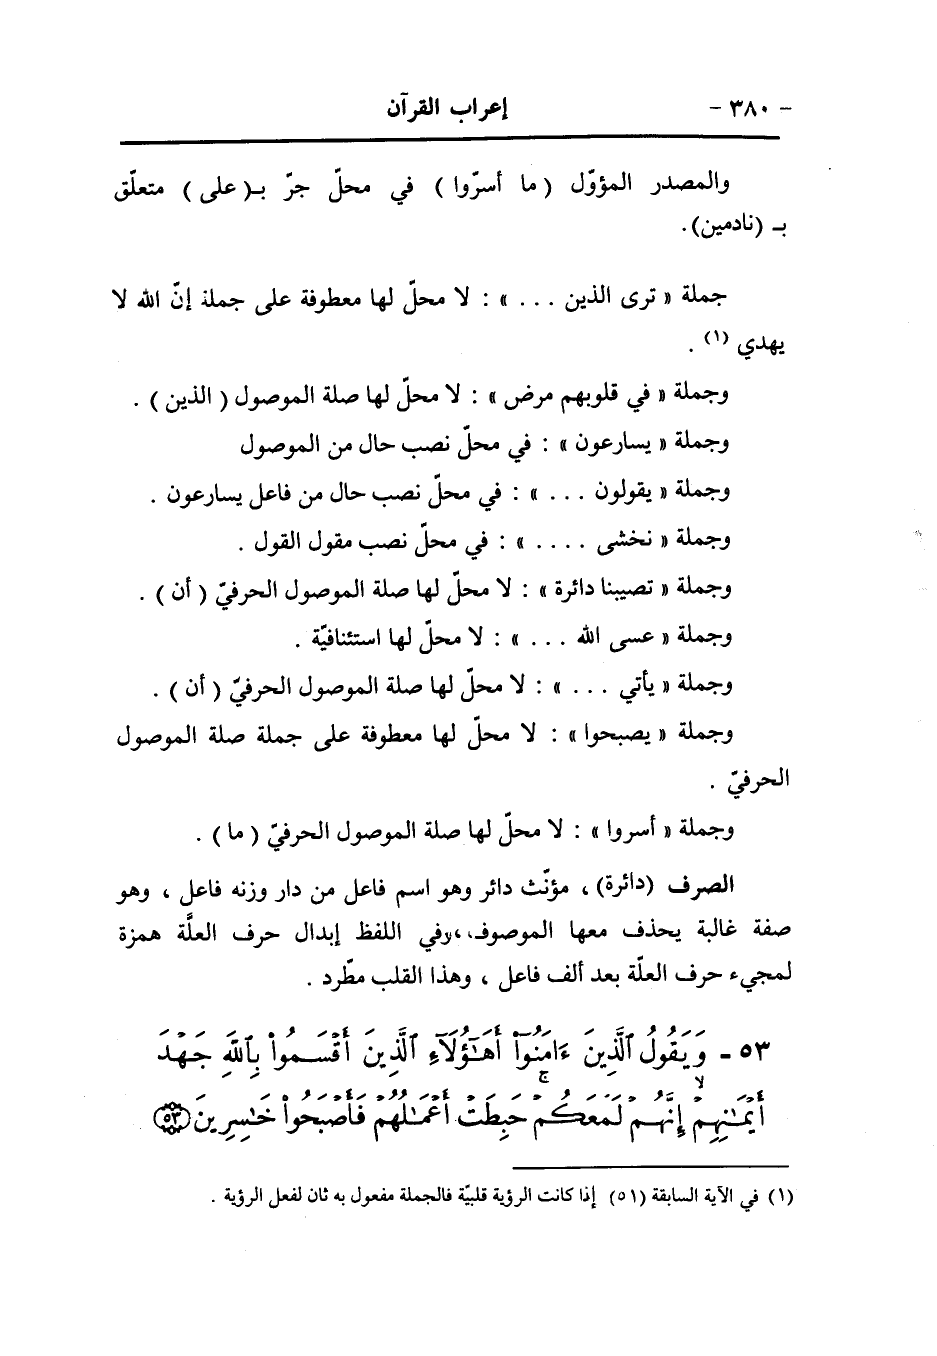 - ٣٨٠ - إعراب القرآن
والمصدر المؤوّل ( ما أسرّوا ) في محلّ جرّ بـ( على ) متعلّق
بـ (نادمين).
جملة « ترى الذين . . . » : لا محلّ لها معطوفة على جملة إنّ الله لا
يهدي (١) .
وجملة « في قلوبهم مرض » : لا محلّ لها صلة الموصول ( الذين ) .
وجملة « يسارعون » : في محلّ نصب حال من الموصول
وجملة « يقولون . . . » : في محلّ نصب حال من فاعل يسارعون .
وجملة « نخشى . . . . » : في محلّ نصب مقول القول .
وجملة « تصيبنا دائرة » : لا محلّ لها صلة الموصول الحرفيّ ( أن ) .
وجملة « عسى الله . . . » : لا محلّ لها استئنافيّة .
وجملة « يأتي . . . » : لا محلّ لها صلة الموصول الحرفيّ ( أن ) .
وجملة « يصبحوا » : لا محلّ لها معطوفة على جملة صلة الموصول
الحرفيّ .
وجملة « أسروا » : لا محلّ لها صلة الموصول الحرفيّ ( ما ) .
الصرف (دائرة) ، مؤنّث دائر وهو اسم فاعل من دار وزنه فاعل ، وهو
صفة غالبة يحذف معها الموصوف ، وفي اللفظ إبدال حرف العلّة همزة
لمجيء حرف العلّة بعد ألف فاعل ، وهذا القلب مطّرد .
٥٣ - وَيَقُولُ ٱلَّذِينَ ءَامَنُوٓا۟ أَهَٰٓؤُلَآءِ ٱلَّذِينَ أَقْسَمُوا۟ بِٱللَّهِ جَهْدَ
أَيْمَٰنِهِمْ ۙ إِنَّهُمْ لَمَعَكُمْ ۚ حَبِطَتْ أَعْمَٰلُهُمْ فَأَصْبَحُوا۟ خَٰسِرِينَ ۝٥٣
(١) في الآية السابقة (٥١) إذا كانت الرؤية قلبيّة فالجملة مفعول به ثان لفعل الرؤية .